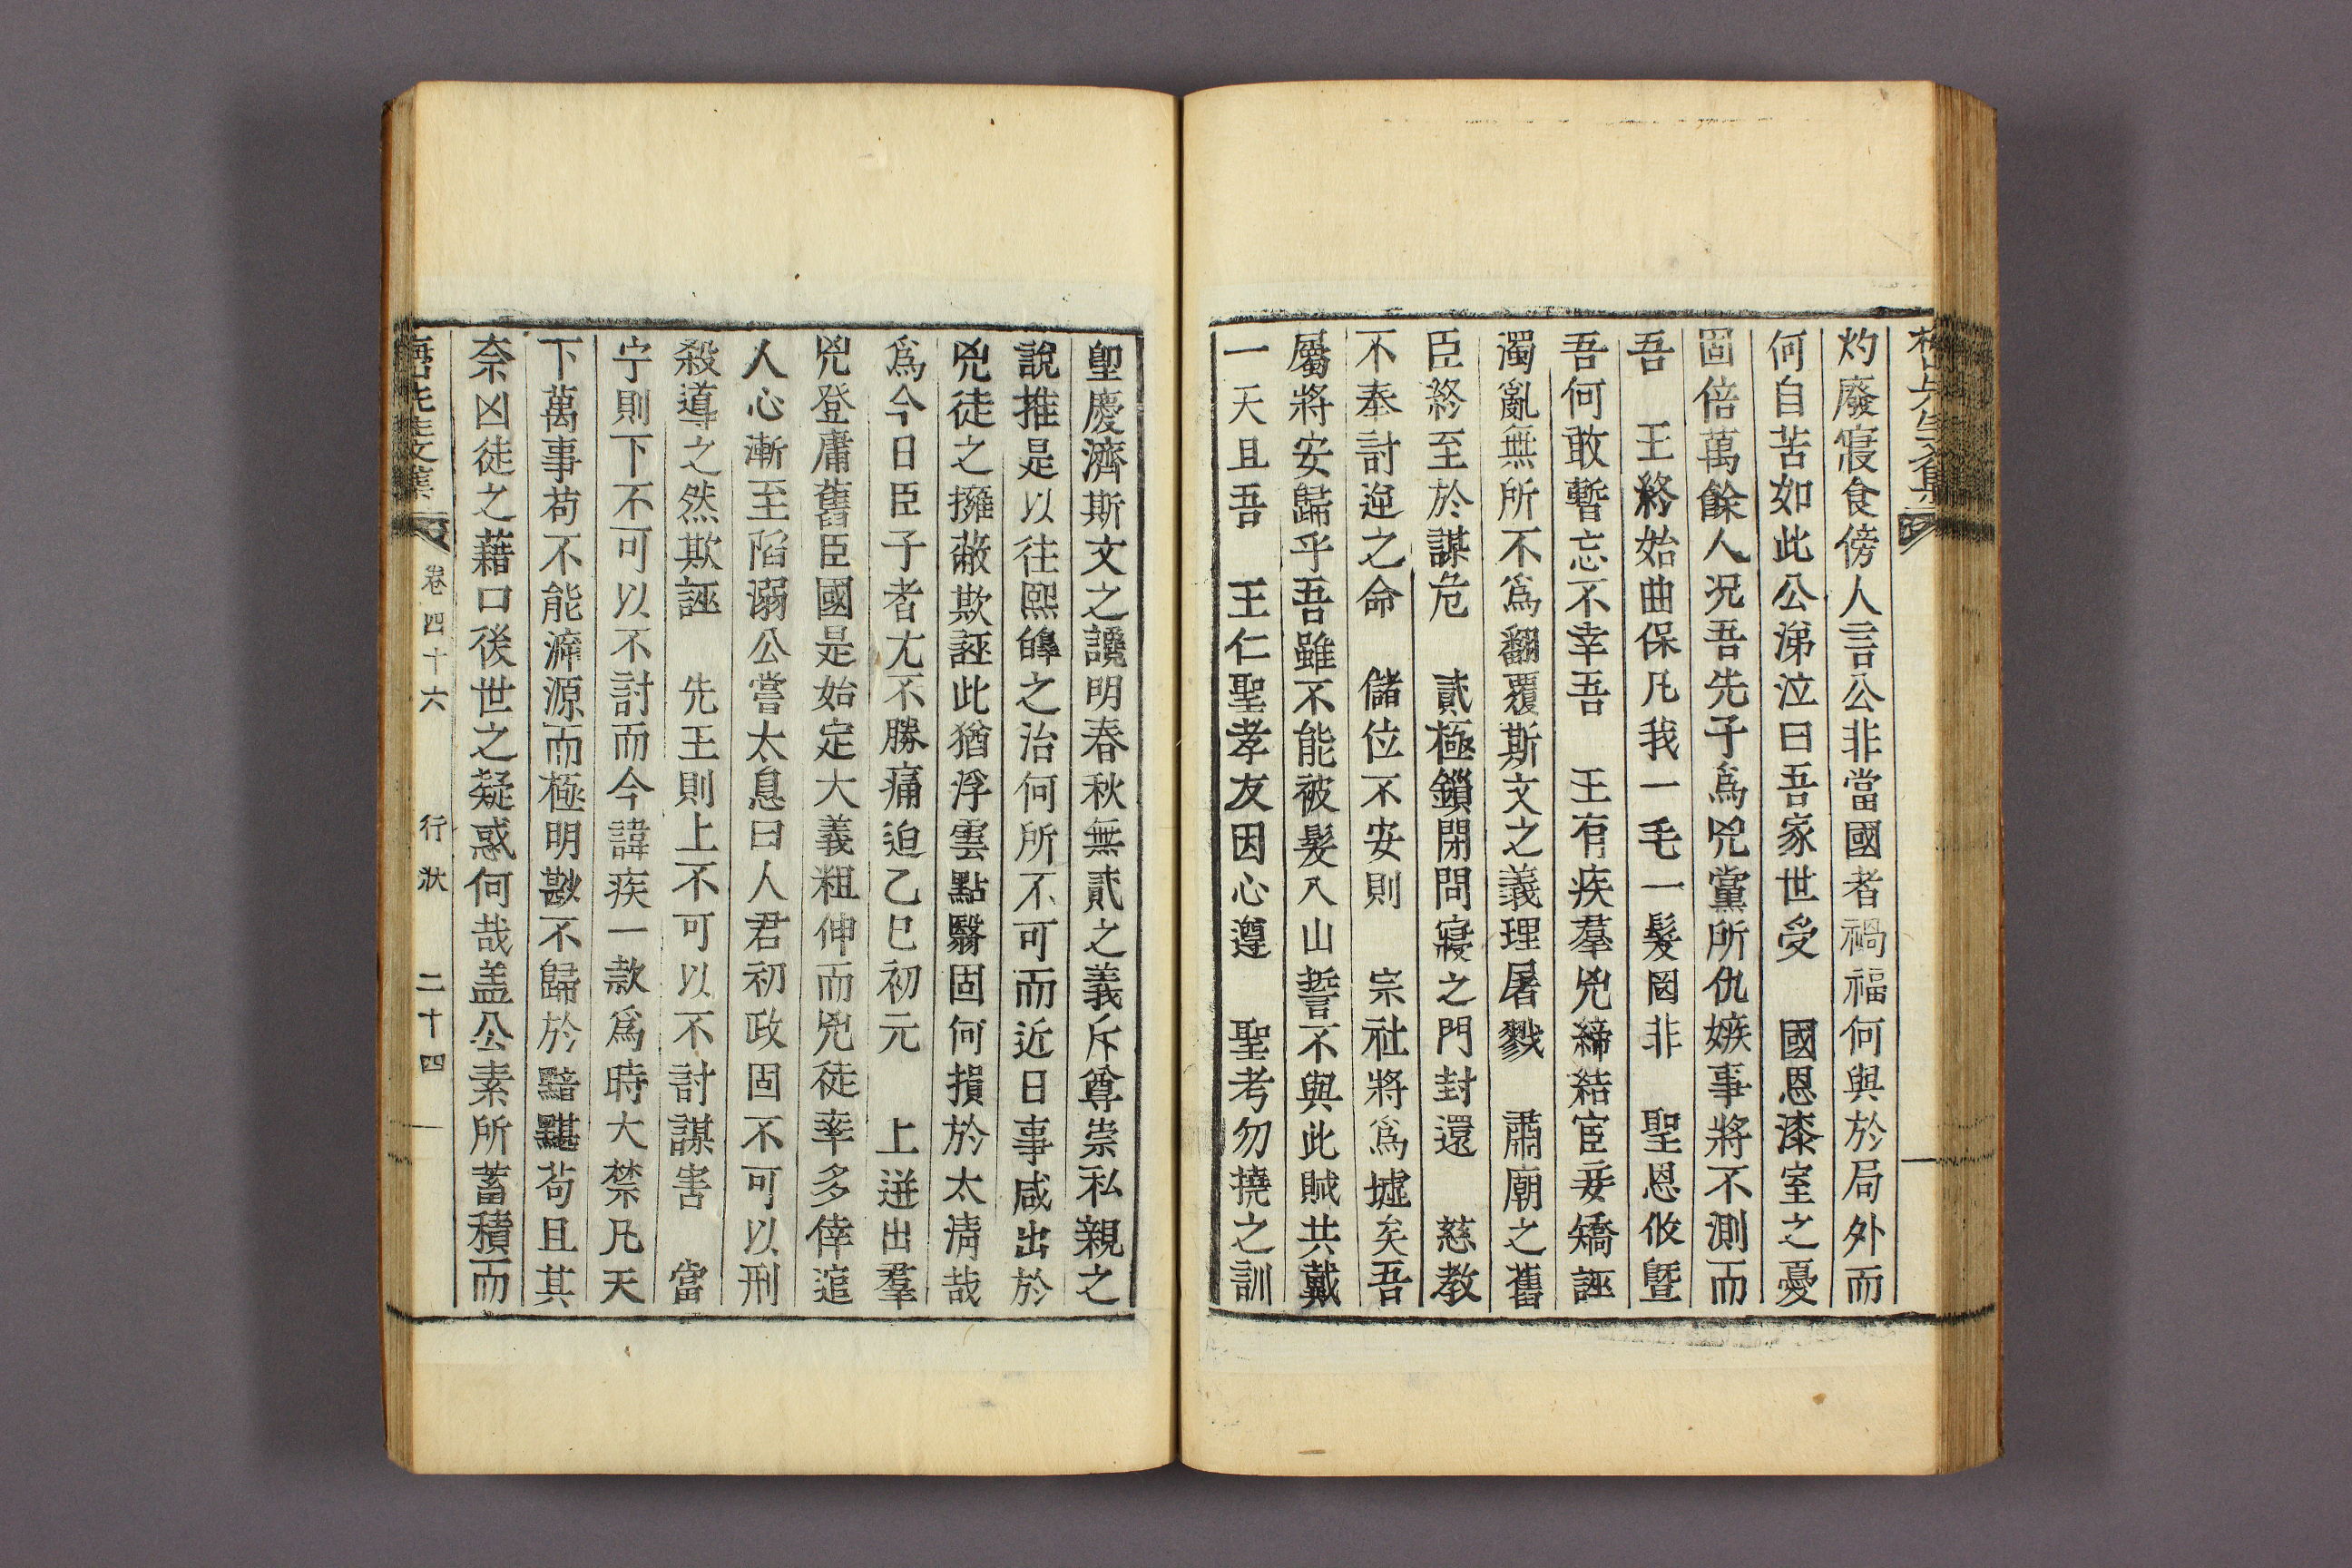 灼廢寢食傍人言公非當國者禍福何與於局外而
何自苦如此公涕泣曰吾家世受　國恩漆室之憂
固倍萬餘人况吾先子爲兇黨所仇嫉事將不測而
吾　王終始曲保凡我一毛一髮罔非　聖恩攸曁
吾何敢暫忘不幸吾　王有疾羣兇締結宦妾矯誣
濁亂無所不爲翻覆斯文之義理屠戮　肅廟之舊
臣終至於謀危　貳極鎖閉問寢之門封還　慈教
不奉討逆之命　儲位不安則　宗社將爲墟矣吾
屬將安歸乎吾雖不能被髮入山誓不與此賊共戴
一天且吾　王仁聖孝友因心遵　聖考勿撓之訓
聖慶濟斯文之讒明春秋無貳之義斥尊崇私親之
說推是以往熙皥之治何所不可而近日事咸出於
兇徒之擁蔽欺誣此猶浮雲點翳固何損於太淸哉
爲今日臣子者尤不勝痛迫乙巳初元　上迸出羣
兇登庸舊臣國是始定大義粗伸而兇徒幸多倖逭
人心漸至陷溺公嘗太息曰人君初政固不可以刑
殺導之然欺誣　先王則上不可以不討謀害　當
宁則下不可以不討而今諱疾一款爲時大禁凡天
下萬事苟不能泝源而極明勘不歸於黯黮苟且其
奈凶徒之藉口後世之疑惑何哉盖公素所蓄積而
先生文集　卷四十六　行狀　二十四